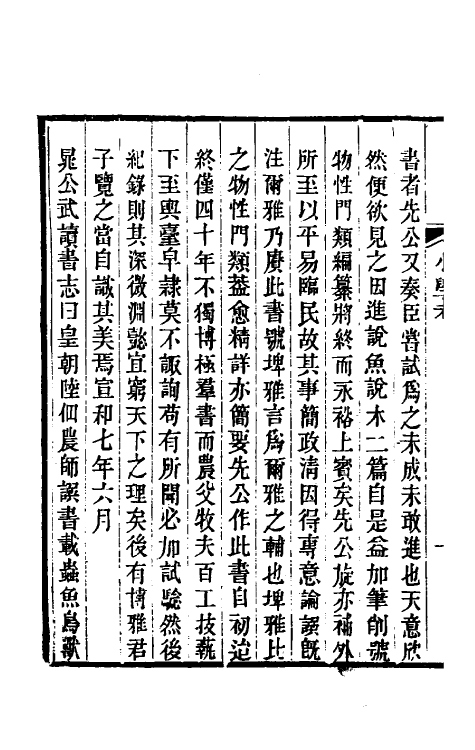 書者先公又奏臣嘗試爲之未成未敢進也天意欣
然便欲見之因進說魚說木二篇自是益加筆削號
物性門類編纂將終而永裕上賓矣先公旋亦補外
所至以平易臨民故其事簡政清因得專意論譔旣
注爾雅乃賡此書號埤雅言爲爾雅之輔也埤雅比
之物性門類蓋愈精詳亦簡要先公作此書自初迨
終僅四十年不獨博極羣書而農父牧夫百工技藝
下至輿臺皁隸莫不諏詢苟有所聞必加試驗然後
紀錄則其深微淵懿宜窮天下之理矣後有博雅君
子覽之當自識其美焉宣和七年六月
晁公武讀書志曰皇朝陸佃農師譔書載蟲魚鳥獸
小學考